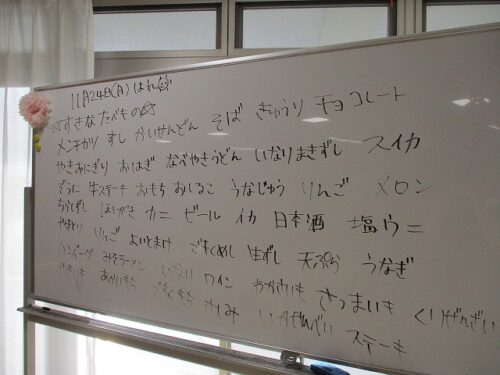 11月24日(月) はれ
☆すきなたべもの☆
メンチカツ すし かいせんどん そば きゅうり チョコレート
やきおにぎり おはぎ なべやきうどん いなりまきずし スイカ
ぞうに 牛ステーキ おもち おしるこ うなじゅう りんご メロン
ちらしずし ほしがき カニ ビール イカ 日本酒 塩ウニ
りんご よいとまけ ざるめし 生ずし 天ぷら うなぎ
ハンバーグ みそラーメン いなり ワイン さつまいも くりぜんざい
やきいも さしみ いかせんべい ステーキ